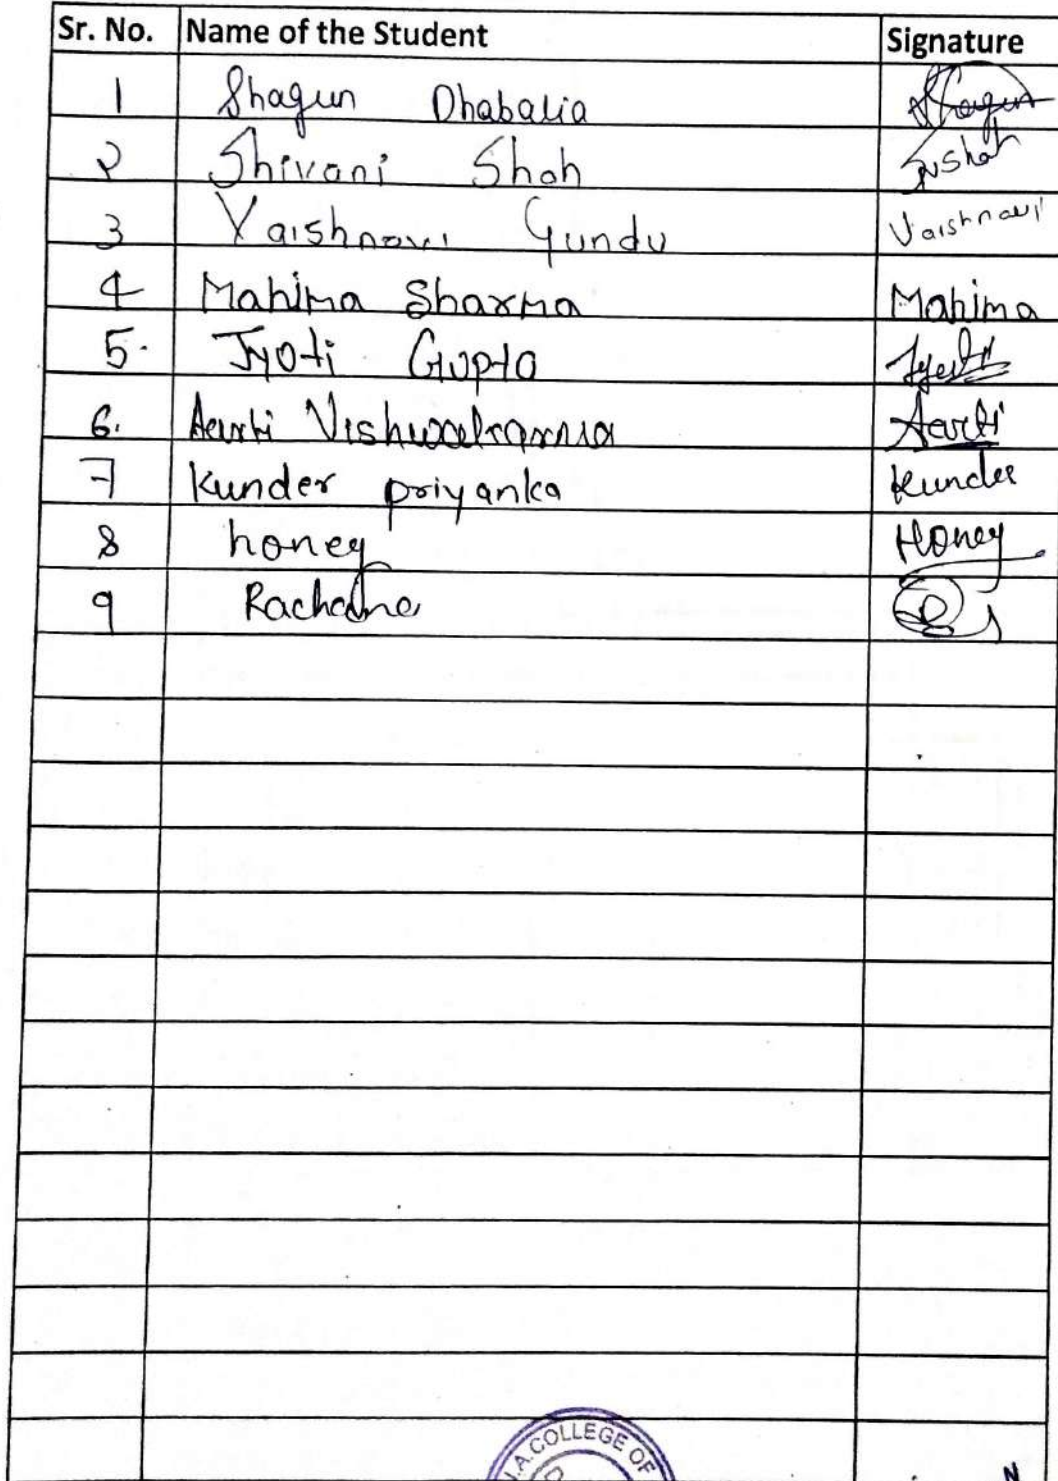 Sr. No. Name of the Student Signature
1 Shagun Dhabalia Shagun
2 Shivani Shah Shah
3 Vaishnavi Gundu Vaishnavi
4 Mahima Sharma Mahima
5. Jyoti Gupta Jyoti
6. Aarti Vishwakarma Aarti
7 Kunder priyanka Kunder
8 honey Honey
9 Rachana
.A. COLLEGE OF